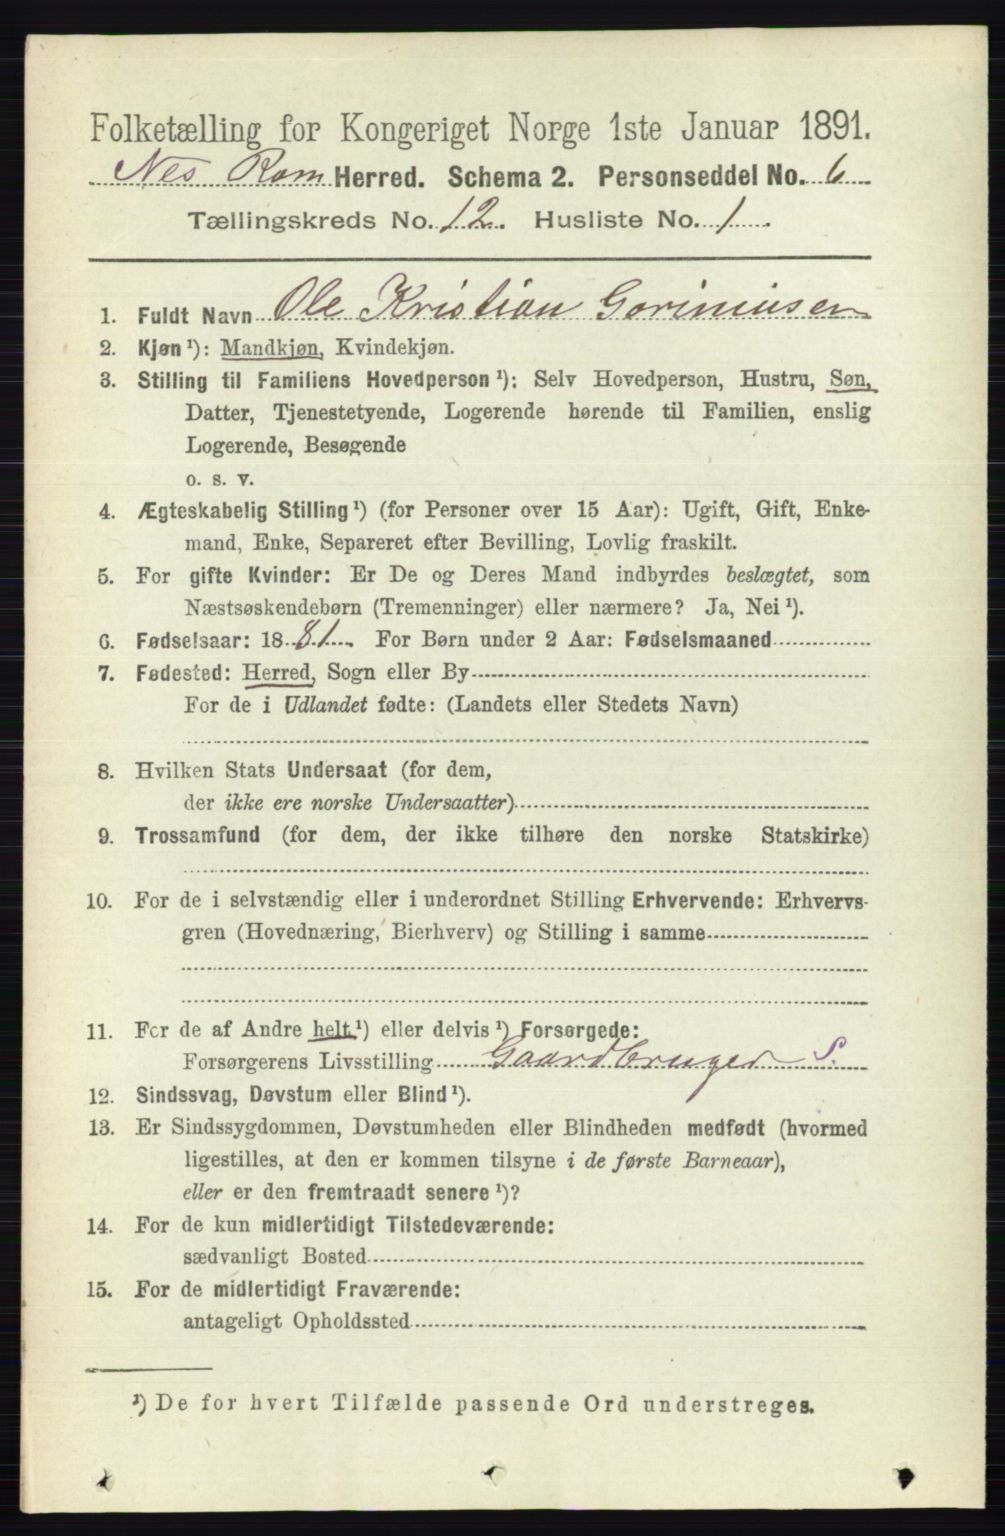 Folketælling for Kongeriget Norge 1ste Januar 1891.
Nes Rom Herred. Schema 2. Personseddel No. 6
Tællingskreds No. 12. Husliste No. 1
1. Fuldt Navn Ole Kristian Gorimiusen
2. Kjøn¹): Mandkjøn, Kvindekjøn.
3. Stilling til Familiens Hovedperson¹): Selv Hovedperson, Hustru, Søn,
Datter, Tjenestetyende, Logerende hørende til Familien, enslig
Logerende, Besøgende
o. s. v.
4. Ægteskabelig Stilling¹) (for Personer over 15 Aar): Ugift, Gift, Enke-
mand, Enke, Separeret efter Bevilling, Lovlig fraskilt.
5. For gifte Kvinder: Er De og Deres Mand indbyrdes beslægtet, som
Næstsøskendebørn (Tremenninger) eller nærmere? Ja, Nei¹).
6. Fødselsaar: 1881. For Børn under 2 Aar: Fødselsmaaned
7. Fødested: Herred, Sogn eller By
For de i Udlandet fødte: (Landets eller Stedets Navn)
8. Hvilken Stats Undersaat (for dem,
der ikke ere norske Undersaatter)
9. Trossamfund (for dem, der ikke tilhøre den norske Statskirke)
10. For de i selvstændig eller i underordnet Stilling Erhvervende: Erhvervs-
gren (Hovednæring, Bierhverv) og Stilling i samme
11. For de af Andre helt¹) eller delvis¹) Forsørgede:
Forsørgerens Livsstilling Gaardbruger S.
12. Sindssvag, Døvstum eller Blind¹).
13. Er Sindssygdommen, Døvstumheden eller Blindheden medfødt (hvormed
ligestilles, at den er kommen tilsyne i de første Barneaar),
eller er den fremtraadt senere¹)?
14. For de kun midlertidigt Tilstedeværende:
sædvanligt Bosted
15. For de midlertidigt Fraværende:
antageligt Opholdssted
¹) De for hvert Tilfælde passende Ord understreges.